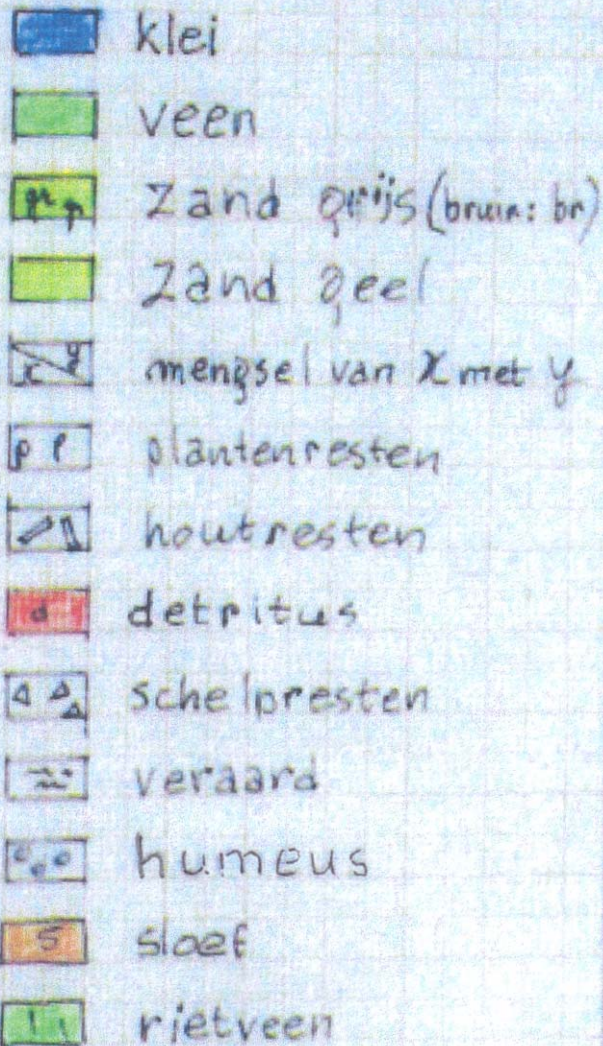 klei
veen
gr gr zand grijs (bruin: br)
zand geel
x y mengsel van x met y
p p plantenresten
houtresten
d detritus
schelpresten
veraard
humeus
S sloef
rietveen